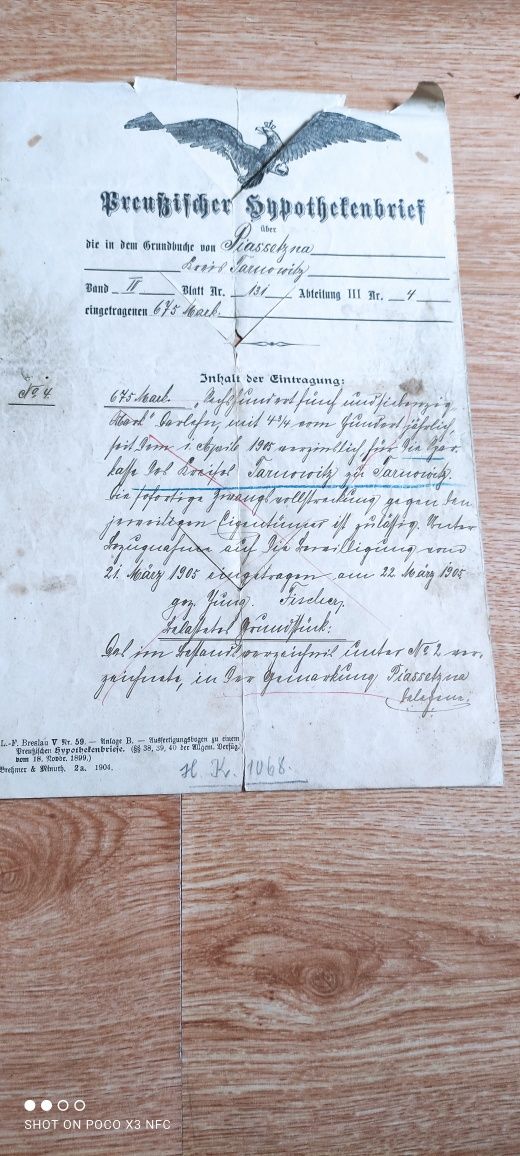 Preußischer Hypothekenbrief
über
die in dem Grundbuche von Piassetzna
Kreis Tarnowitz
Band II Blatt Nr. 131 Abteilung III Nr. 4
eingetragenen 675 Mark.
Inhalt der Eintragung:
No 4
675 Mark. Sechshundert fünf und siebenzig
Mark Darlehn, mit 4¾ vom Hundert jährlich
seit dem 1. April 1905 verzinslich für die Spar-
kasse des Kreises Tarnowitz zu Tarnowitz.
Die sofortige Zwangsvollstreckung gegen den
jeweiligen Eigentümer ist zulässig. Unter
Bezugnahme auf die Bewilligung vom
21. März 1905 eingetragen am 22. März 1905
gez. Jung. Fischer.
Belastetes Grundstück:
Das im Bestandsverzeichnis unter No 2 ver-
zeichnete, in der Gemarkung Piassetzna
belegene
L.-F. Breslau V Nr. 59. — Anlage B. — Ausfertigungsbogen zu einem
Preußischen Hypothekenbriefe. (§§ 38, 39, 40 der Allgem. Verfüg.
vom 18. Novbr. 1899.)
Brehmer & Minuth. 2a. 1904.
H. K. 1068.
SHOT ON POCO X3 NFC